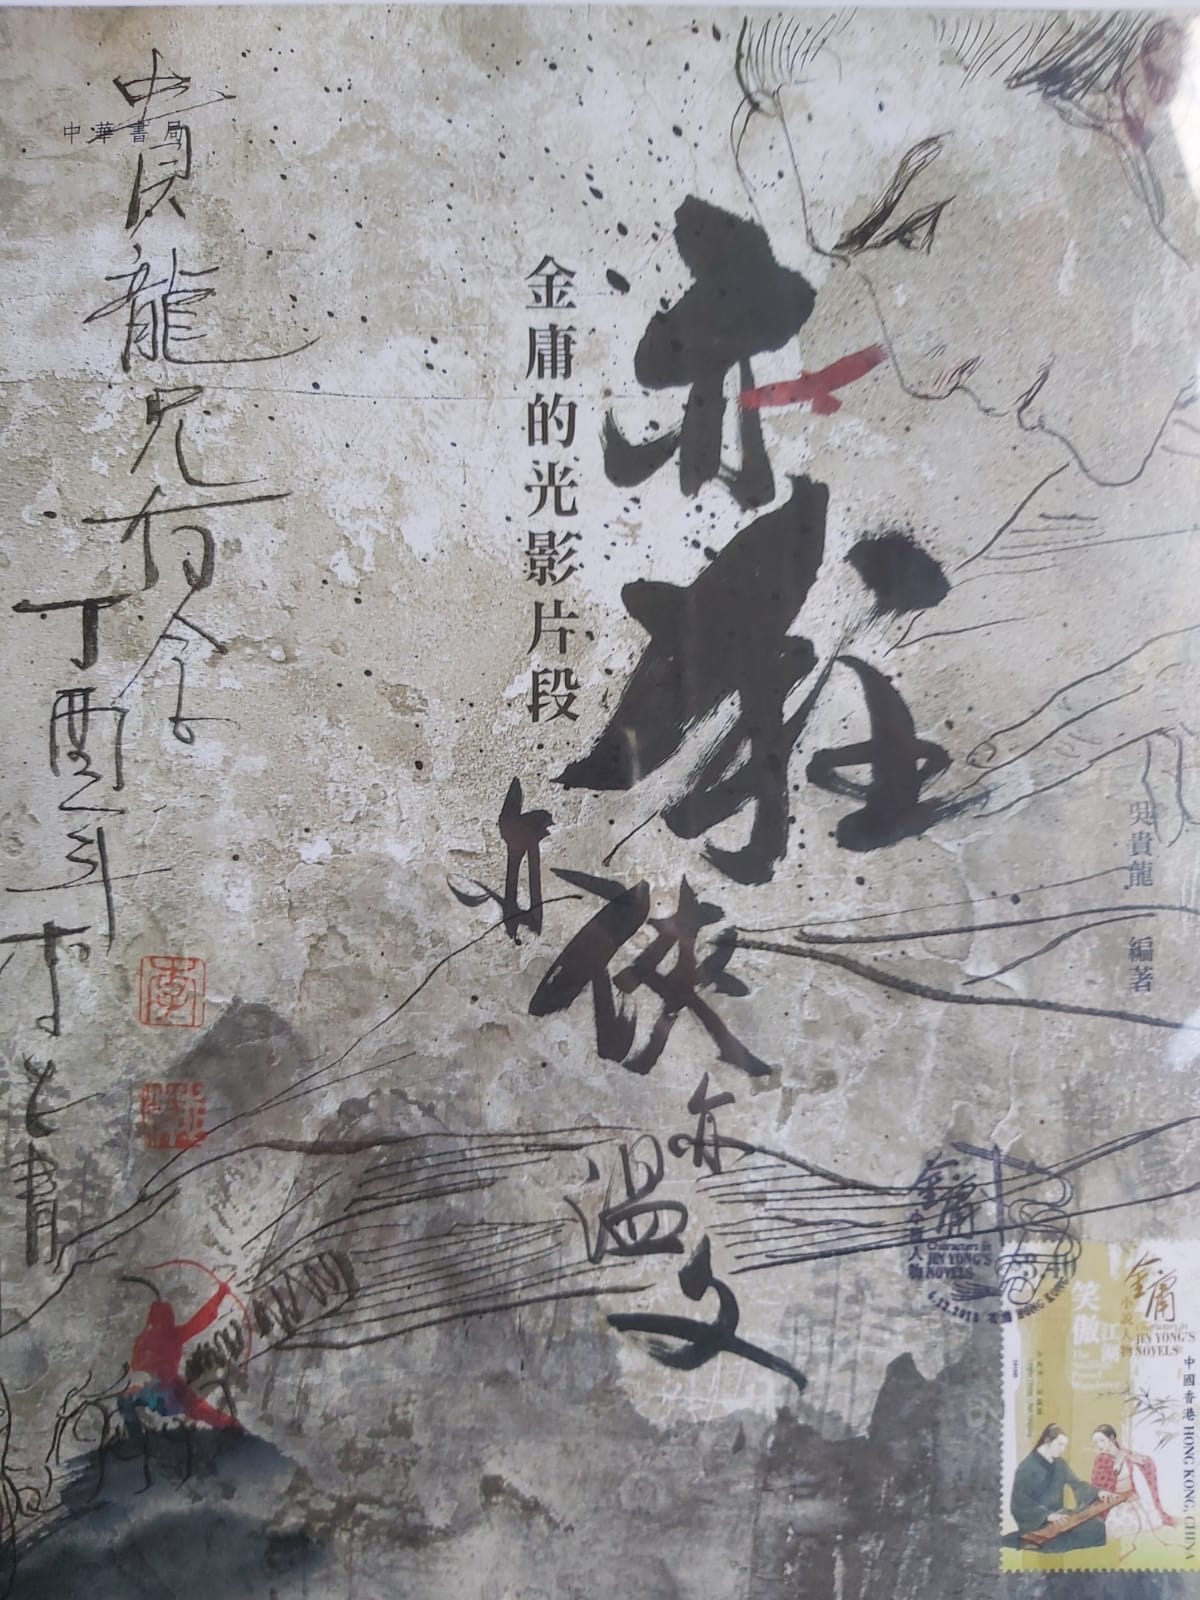 中華書局
亦狂
亦俠
亦溫文
金庸的光影片段
吳貴龍 編著
貴龍兄存念
丁酉年
書
金庸
小說人物
Characters in
JIN YONG'S
NOVELS
6.12.2018 香港 HONG KONG
金庸
小說人物
Characters in
JIN YONG'S
NOVELS
笑傲江湖
中國香港 HONG KONG, CHINA